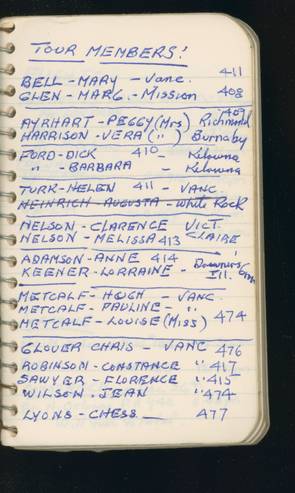 TOUR MEMBERS!
BELL - MARY - Vanc. 411
GLEN - MARG. - Mission 408
409
AYRHART - PEGGY (Mrs) Richmond
HARRISON - VERA ( " ) Burnaby
FORD - DICK 410 - Kelowna
" - BARBARA - Kelowna
TURK - HELEN 411 - VANC.
HEINRICH AUGUSTA - White Rock
NELSON - CLARENCE VICT.
NELSON - MELISSA 413 CLAIRE
ADAMSON - ANNE 414 - Downers
KEENER - LORRAINE - Ill.
METCALF - HUGH - VANC.
METCALF - PAULINE - "
METCALF - LOUISE (Miss) 474
GLOVER CHRIS - VANC 476
ROBINSON - CONSTANCE " 417
SAWYER - FLORENCE " 415
WILSON. JEAN " 474
LYONS - CHESS — 477